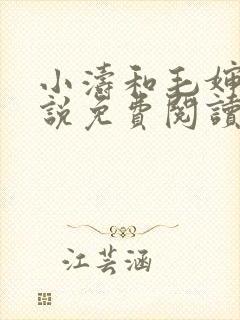 小濤和毛婶
說免費閱讀
江芸涵